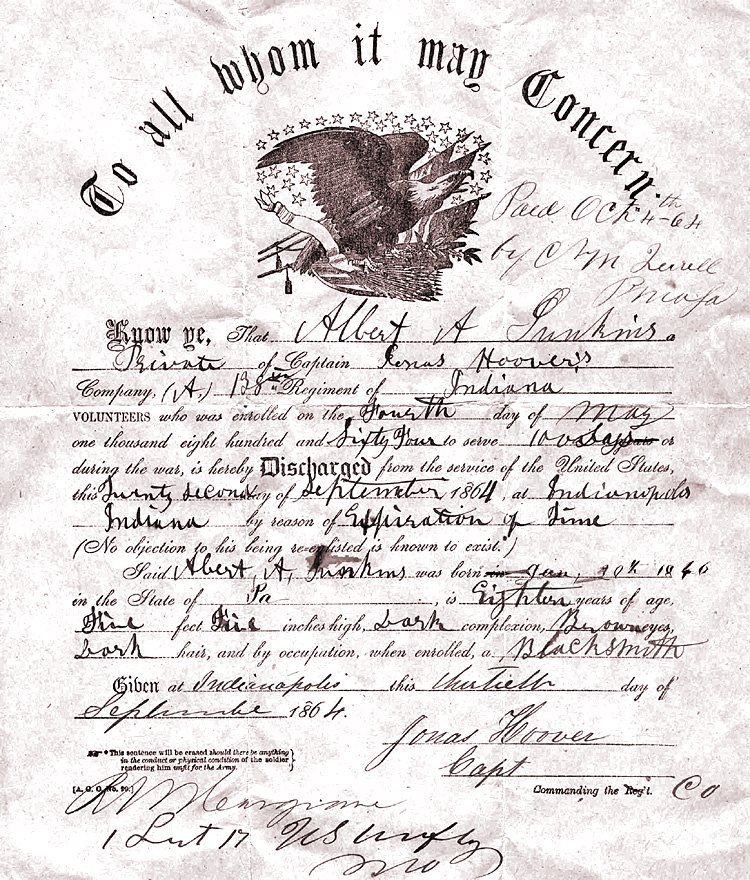 To all whom it may Concern
Paid Oct 4th -64
by C M Terrell
Know ye, That Albert A Junkins a
Private of Captain Jonas Hoover's
Company, (A,) 138th Regiment of Indiana
VOLUNTEERS who was enrolled on the Fourth day of May
one thousand eight hundred and Sixty Four to serve 100 Days years or
during the war, is hereby Discharged from the service of the United States,
this Twenty second day of September 1864, at Indianopolis
Indiana by reason of Expiration of Time
(No objection to his being re-enlisted is known to exist.*)
Said Albert A, Junkins was born in Jan,
in the State of Pa , is Eighteen years of age,
Five feet Five inches high, Dark complexion, Brown eyes,
Dark hair, and by occupation, when enrolled, a Blacksmith
Given at Indianapolis this thirtieth day of
September 1864.
Jonas Hoover
Capt
* This sentence will be erased should there be anything
in the conduct or physical condition of the soldier
rendering him unfit for the Army.
[A. G. O. No. 99.]
Commanding the Reg't. Co
1 Lieut 17 US Infty